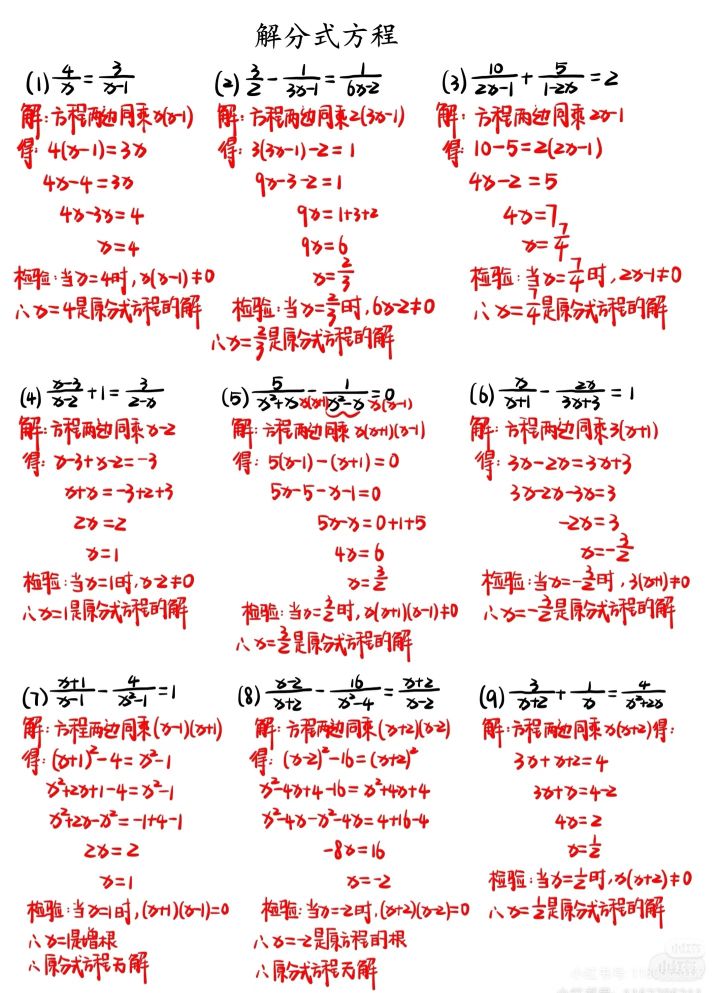 解分式方程
(1) 4/x = 3/(x-1)
解:方程两边同乘x(x-1)
得: 4(x-1)=3x
4x-4=3x
4x-3x=4
x=4
检验:当x=4时,x(x-1)≠0
∴x=4是原分式方程的解
(2) 3/2 - 1/(3x-1) = 1/(6x-2)
解:方程两边同乘2(3x-1)
得: 3(3x-1)-2=1
9x-3-2=1
9x=1+3+2
9x=6
x=2/3
检验:当x=2/3时,6x-2≠0
∴x=2/3是原分式方程的解
(3) 10/(2x-1) + 5/(1-2x) = 2
解:方程两边同乘2x-1
得: 10-5=2(2x-1)
4x-2=5
4x=7
x=7/4
检验:当x=7/4时,2x-1≠0
∴x=7/4是原分式方程的解
(4) (x-3)/(x-2) + 1 = 3/(2-x)
解:方程两边同乘x-2
得: x-3+x-2=-3
x+x=-3+2+3
2x=2
x=1
检验:当x=1时,x-2≠0
∴x=1是原分式方程的解
(5) 5/(x²+x) x(x+1) - 1/(x²-x) x(x-1) = 0
解:方程两边同乘x(x+1)(x-1)
得: 5(x-1)-(x+1)=0
5x-5-x-1=0
5x-x=0+1+5
4x=6
x=3/2
检验:当x=3/2时,x(x+1)(x-1)≠0
∴x=3/2是原分式方程的解
(6) x/(x+1) - 2x/(3x+3) = 1
解:方程两边同乘3(x+1)
得: 3x-2x=3x+3
3x-2x-3x=3
-2x=3
x=-3/2
检验:当x=-3/2时,3(x+1)≠0
∴x=-3/2是原分式方程的解
(7) (x+1)/(x-1) - 4/(x²-1) = 1
解:方程两边同乘(x-1)(x+1)
得: (x+1)²-4=x²-1
x²+2x+1-4=x²-1
x²+2x-x²=-1+4-1
2x=2
x=1
检验:当x=1时,(x+1)(x-1)=0
∴x=1是增根
∴原分式方程无解
(8) (x-2)/(x+2) - 16/(x²-4) = (x+2)/(x-2)
解:方程两边同乘(x+2)(x-2)
得: (x-2)²-16=(x+2)²
x²-4x+4-16=x²+4x+4
x²-4x-x²-4x=4+16-4
-8x=16
x=-2
检验:当x=-2时,(x+2)(x-2)=0
∴x=-2是原方程的根
∴原分式方程无解
(9) 3/(x+2) + 1/x = 4/(x²+2x)
解:方程两边同乘x(x+2)得:
3x+x+2=4
3x+x=4-2
4x=2
x=1/2
检验:当x=1/2时,x(x+2)≠0
∴x=1/2是原分式方程的解
小红书